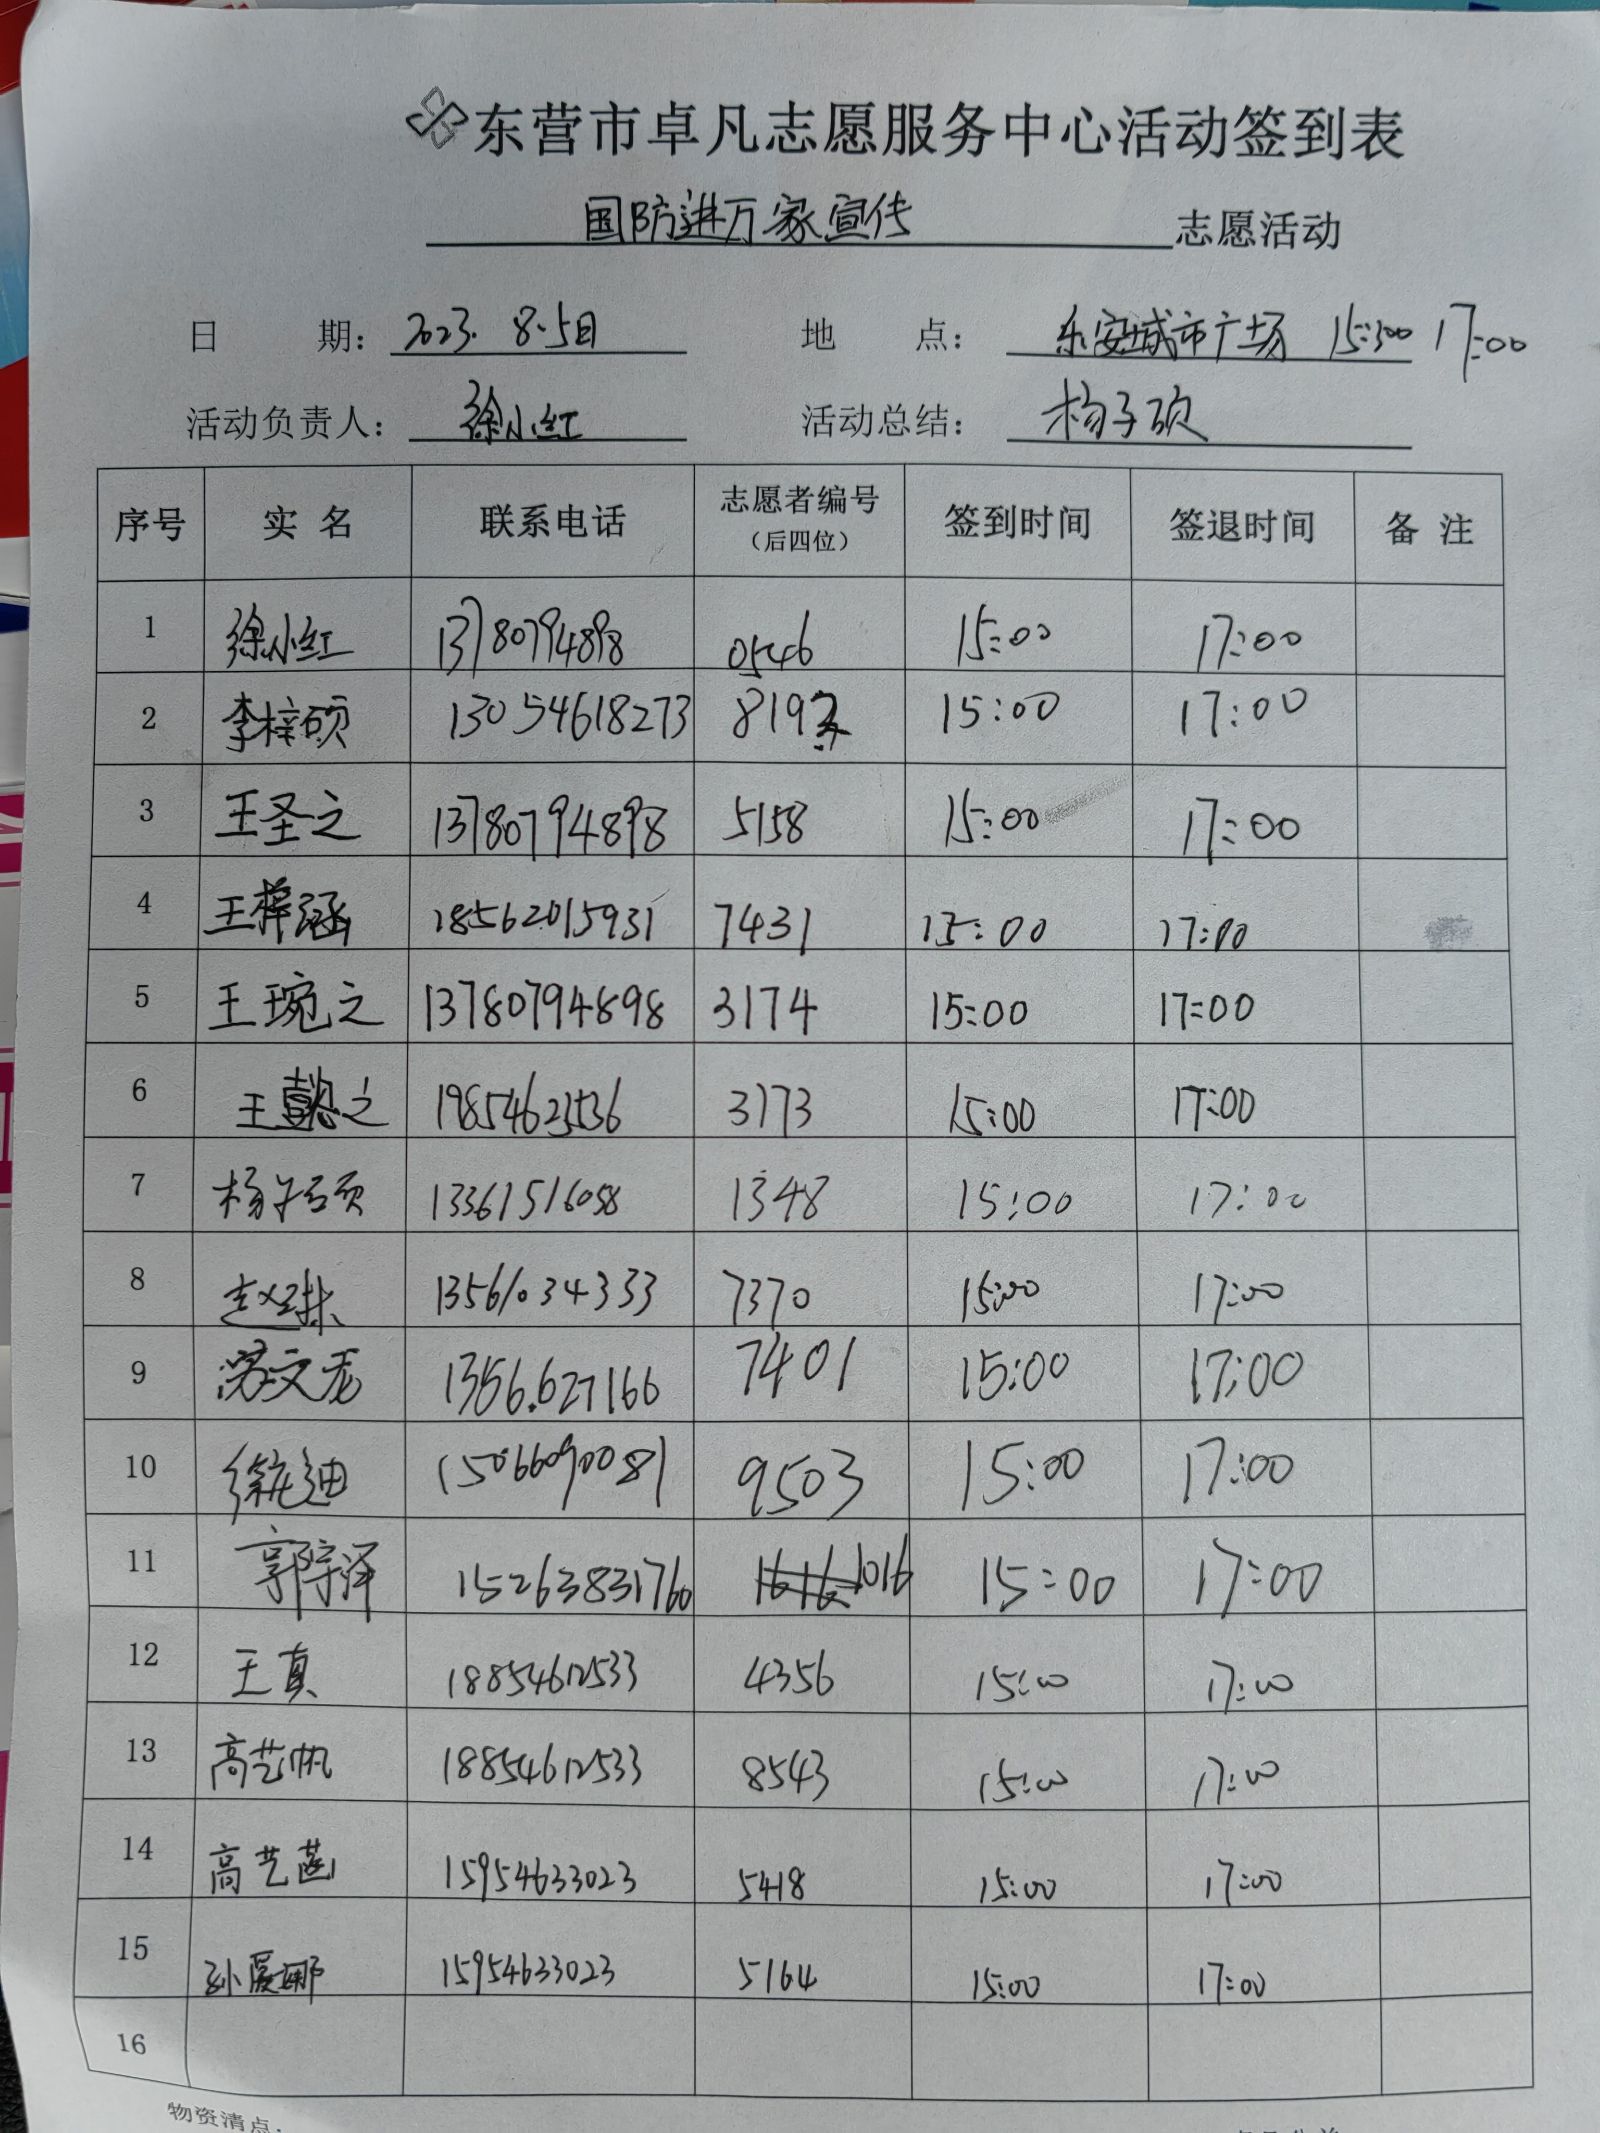 东营市卓凡志愿服务中心活动签到表
国防进万家宣传 志愿活动
日 期: 2023. 8.5日 地 点: 东安城市广场 15:300 17:00
活动负责人: 徐小红 活动总结: 杨子硕
序号 实 名 联系电话 志愿者编号（后四位） 签到时间 签退时间 备 注
1 徐小红 13780794898 0546 15:00 17:00
2 李梓硕 13054618273 819 15:00 17:00
3 王圣之 13780794898 5158 15:00 17:00
4 王梓涵 18562015931 7431 15:00 17:00
5 王琬之 13780794898 3174 15:00 17:00
6 王懿之 3173 15:00 17:00
7 杨子硕 13361516058 1348 15:00 17:00
8 赵琳 13561034333 7370 15:00 17:00
9 苏文龙 1356.627166 7401 15:00 17:00
10 迪 15066090081 9503 15:00 17:00
11 郭宗泽 15263831760 1016 15:00 17:00
12 王真 18854612533 4356 15:00 17:00
13 高艺帆 18854612533 8543 15:00 17:00
14 高艺菡 15954633023 5418 15:00 17:00
15 孙 娜 15954633023 5164 15:00 17:00
16
物资清点: